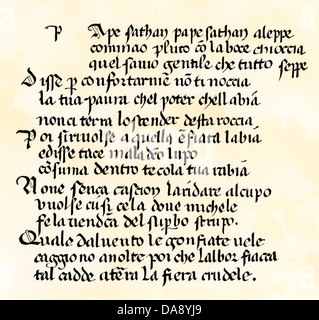 P Ape sathan pape sathan aleppe
cominao pluto cō la boce chioccia
quel sauio gentile che tutto seppe
Disse p confortarme nō ti noccia
la tua paura chel poter chell abia
non ci terra lo scender desta roccia
Poi si riuolse a quella ēfiata labia
e disse tace maladcō lupo
cōsuma dentro te co la tua rabia
Non e senca casgion landare al cupo
vuolse cusi cola doue michele
fe la uendcta del supbo strupo.
Quale dal uento le gonfiate uele
caggiono auolte poi che lalbor fiacca
tal cadde a tera la fiera crudele.
DA8YJ9